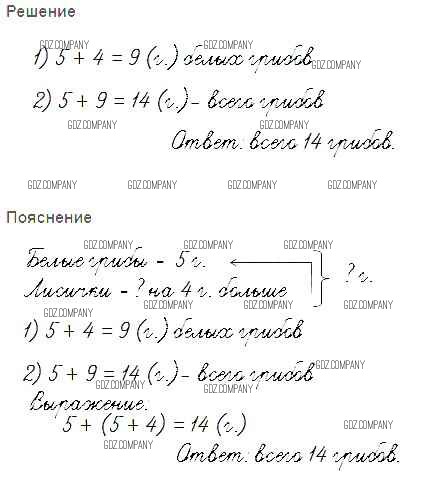 Решение
GDZ.COMPANY GDZ.COMPANY
1) 5 + 4 = 9 (г.) белых грибов
GDZ.COMPANY
2) 5 + 9 = 14 (г.) - всего грибов
GDZ.COMPANY GDZ.COMPANY
Ответ: всего 14 грибов.
GDZ.COMPANY GDZ.COMPANY GDZ.COMPANY GDZ.COMPANY
Пояснение
GDZ.COMPANY GDZ.COMPANY GDZ.COMPANY
Белые грибы - 5 г.
? г.
Лисички - ? на 4 г. больше
GDZ.COMPANY GDZ.COMPANY GDZ.COMPANY GDZ.COMPANY
1) 5 + 4 = 9 (г.) белых грибов
2) 5 + 9 = 14 (г.) - всего грибов
GDZ.COMPANY GDZ.COMPANY GDZ.COMPANY
Выражение:
5 + (5 + 4) = 14 (г.)
GDZ.COMPANY GDZ.COMPANY
Ответ: всего 14 грибов.